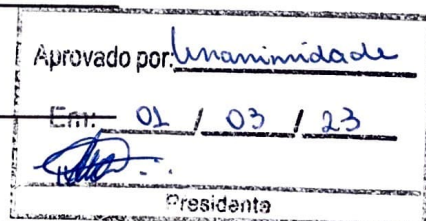 Aprovado por: Unanimidade
Em: 01 / 03 / 23
Presidente